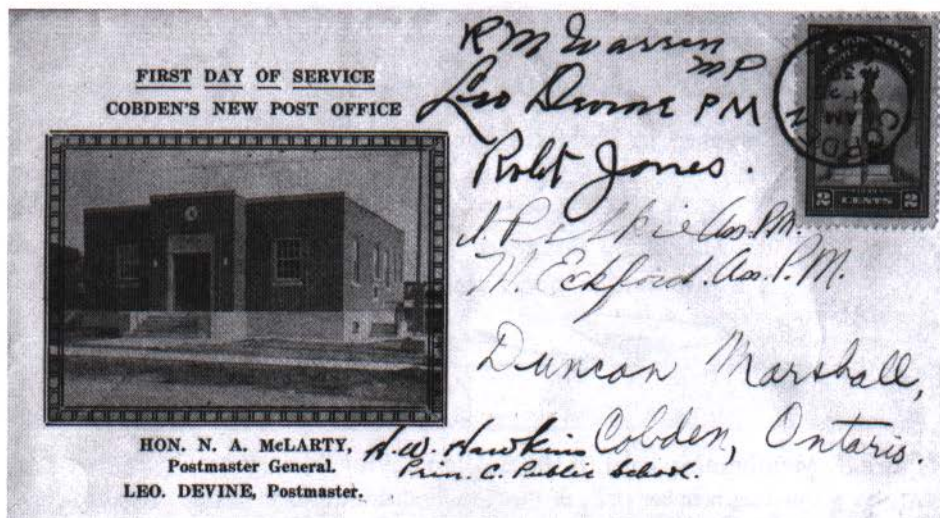 FIRST DAY OF SERVICE
COBDEN'S NEW POST OFFICE
HON. N. A. McLARTY,
Postmaster General.
LEO. DEVINE, Postmaster.
RM Warren
MP
Leo Devine PM
Robt Jones.
Ass. P.M.
M. Eckford. Ass. P.M.
Duncan Marshall,
Cobden, Ontario.
H.W. Hawkins
Prin. C. Public School.
CANADA
2 CENTS 2
COBDEN
AM